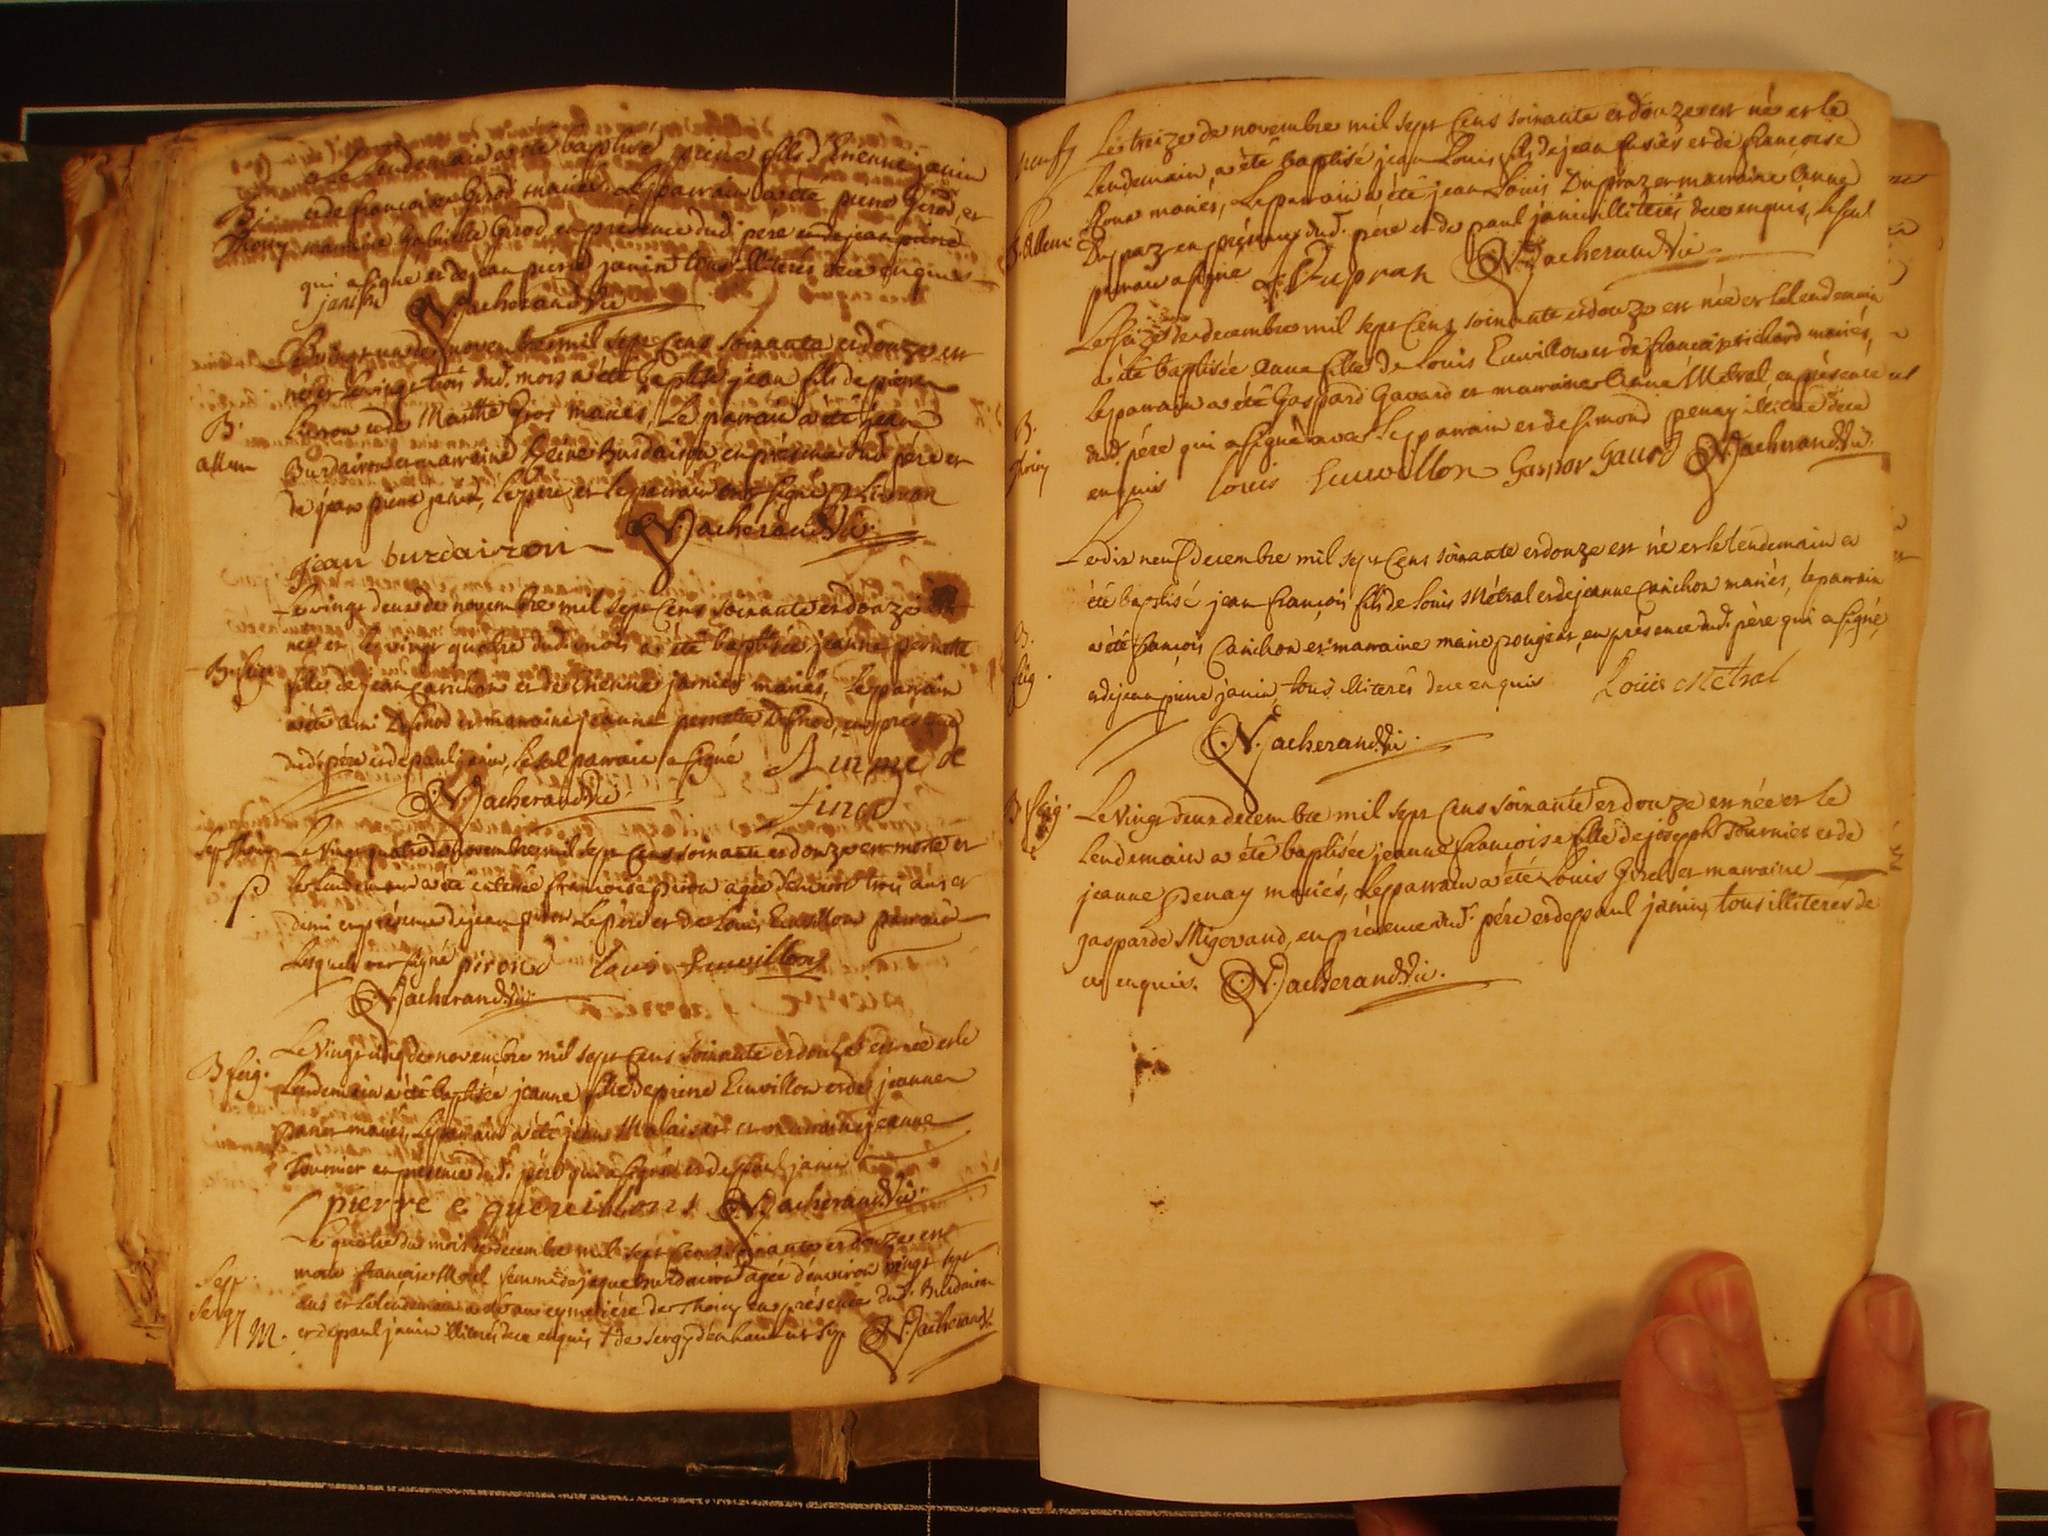 a Le Lendemain a été baptisé pierre fils d'Etienne janin
B. et de françoise Girod mariés, Le parrain a été pierre Girod, et
Thoiry marraine Gabrielle Girod en présence dud. père et de jean pierre
qui a signé et de jean pierre janin tous illiterés de ce enquis
janin N. Jacherand Vic
Le vingt un de novembre mil sept cens soixante et douze est
né et le vingt trois dud. mois a été baptisé jean fils de pierre
B. Livron et de Marthe Gros mariés, Le parrain a été jean
allem Burdairon et marraine Burdairon, en présence dud. père et
de jean pierre janin, Le père et le parrain ont signé P Livron
jean burdairon N. Jacherand Vic.
Le vingt deux de novembre mil sept cens soixante et douze est
née et le vingt quatre dud. mois a été baptisée jeanne pernette
B. Serg. fille de jean Canichon et d'Etienne janier mariés, Le parrain
a été Ami et marraine jeanne pernette en présence
dud. père et de paul janin, le seul parrain a signé
N. Jacherand Vic
Sep. Thoiry Le vingt quatre de novembre mil sept cens soixante et douze est morte et
f. le lendemain a été enterrée françoise piron agée d'environ trois ans et
demi en présence de jean piron Le père et de Louis Emvillon parrain
Lesquels ont signé piron Louis Emvillon
N. Jacherand Vic.
Le Vingt cinq de novembre mil sept cens soixante et douze est née et le
B Serg. Lendemain a été baptisée jeanne fille de pierre Emvillon et de jeanne
mariés, Le parrain a été jean Malaisar et marraine jeanne
Tournier en présence dud. père qui a signé et de paul janin
pierre N. Jacherand Vic.
Le quatre du mois de decembre mil sept cens soixante et douze est
Sep. morte françoise femme de jaque Burdairon agée d'environ vingt sept
Sergy ans et le lendemain a été au cymetiére de Thoiry en présence dud. Burdairon
M. et de paul janin illiterés de ce enquis de Sergy d'en haut N. Jacherand V.
Le treize de novembre mil sept cens soixante et douze est né et le
lendemain, a été baptisé jean Louis fils de jean et de françoise
mariés, Le parrain a été jean Louis Dupraz et marraine Anne
B. Allem. Dupraz en présence dud. père et de paul janin illiterés de ce enquis, le seul
parrain a signé Dupran N. Jacherand Vic.
Le seize de decembre mil sept cens soixante et douze est née et le lendemain
a été baptisée Anne fille de Louis Emvillon et de richard mariés,
B. Le parrain a été Gaspard Gavard et marraine Anne Métral, en présence
Thoiry dud. père qui a signé avec le parrain et de simond penay illiteré de ce
enquis Louis Gaspar Gavard N. Jacherand Vic.
Le dix neuf decembre mil sept cens soixante et douze est né et le lendemain a
été baptisé jean françois fils de Louis Métral et de jeanne Canichon mariés, le parrain
B. a été françois Canichon et marraine marie pougeat, en présence dud. père qui a signé,
Serg. et de jean pierre janin, tous illiterés de ce enquis Louis Metral
N. Jacherand Vic.
B Serg. Le Vingt deux decembre mil sept cens soixante et douze est née et le
lendemain a été baptisée jeanne françoise fille de joseph Tournier et de
jeanne Penay mariés, Le parrain a été Louis Girel et marraine
gasparde Migevand, en présence dud. père et de paul janin, tous illiterés de
ce enquis. N. Jacherand Vic.